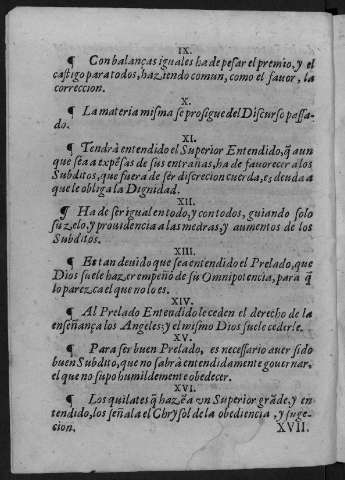 IX.
¶ Con balanças iguales ha de pesar el premio, y el
castigo para todos, haziendo comun, como el fauor, la
correccion.
X.
¶ La materia misma se prosigue del Discurso passa-
do.
XI.
¶ Tendrà entendido el Superior Entendido, q̃ aun
que sea a expẽsas de sus entrañas, ha de fauorecer a los
Subditos, que fuera de ser discrecion cuerda, es deuda a
que le obliga la Dignidad.
XII.
¶ Ha de ser igual en todo, y con todos, guiando solo
su zelo, y prouidencia a las medras, y aumentos de los
Subditos.
XIII.
¶ Es tan deuido que sea entendido el Prelado, que
Dios suele hazer empeño de su Omnipotencia, para q̃
lo parezca el que no lo es.
XIV.
¶ Al Prelado Entendido le ceden el derecho de la
enseñança los Angeles; y el mismo Dios suele cederle.
XV.
¶ Para ser buen Prelado, es necessario auer sido
buen Subdito, que no sabrà entendidamente gouernar,
el que no supo humildemente obedecer.
XVI.
¶ Los quilates q̃ hazẽ a vn Superior grãde, y en-
tendido, los señala el Chrysol de la obediencia, y suge-
cion.
XVII.